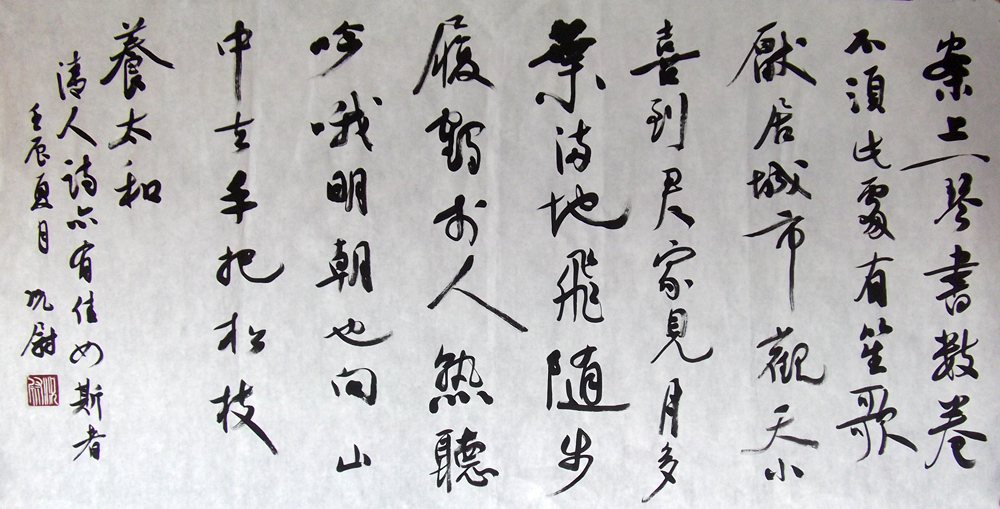 案上琴書數卷
不須此處有笙歌
厭居城市觀天小
喜到君家見月多
葉滿地飛随步
履鶴於人熟聽
吟哦明朝也向山
中去手把松枝
養太和
清人詩亦有佳如斯者
壬辰夏月 尉